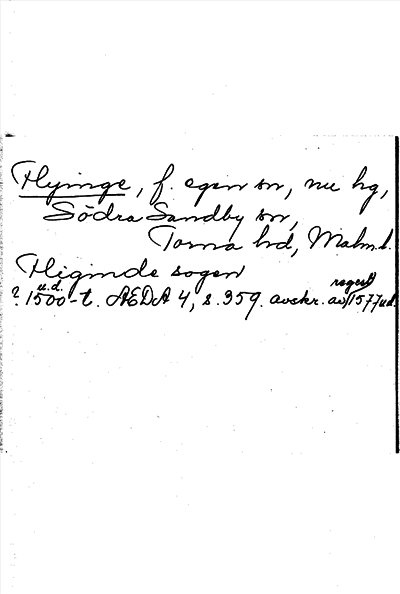 Flyinge, f. egen sn, nu hg,
Södra Sandby sn,
Torna hd, Malm.l.
Fliginde sogen
? u.d. 1500-t. AEDA 4, s. 359. avskr. av regest 1577 u.d.